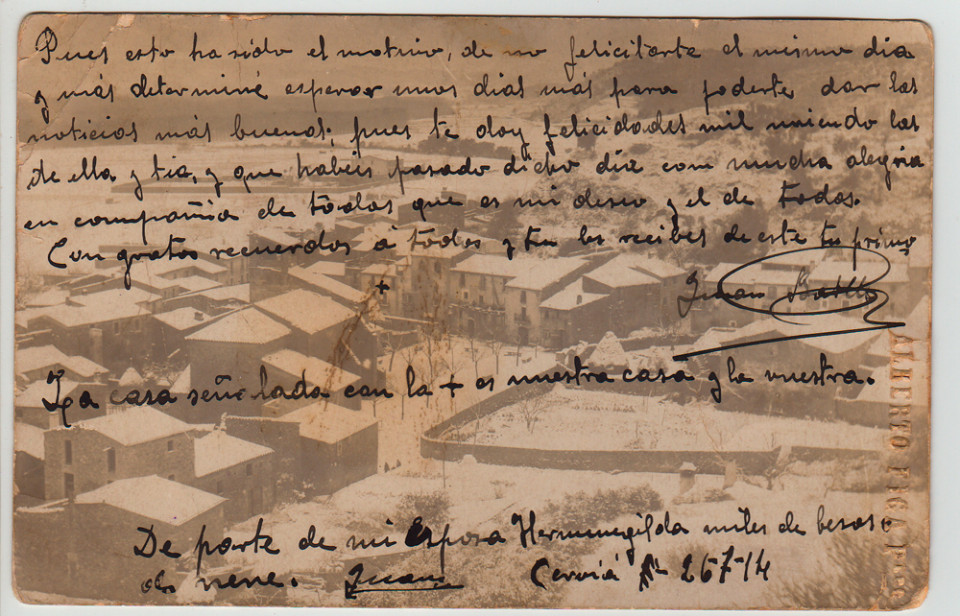 Pues esto ha sido el motivo, de no felicitarte el mismo dia
y más determiné esperar unos dias más para poderte dar las
noticias más buenas; pues te doy felicidades mil uniendo las
de ella y tia, y que habéis pasado dicho dia con mucha alegria
en compañia de todos que es mi deseo y el de todos.
Con gratos recuerdos á todos y tu los recibes de este tu primo
Juan
+
La casa señalada con la + es nuestra casa y la vuestra.
De parte de mi Esposa Hermenegilda miles de besos
nene. Juan Cerviá 26 7-14
ALBERTO